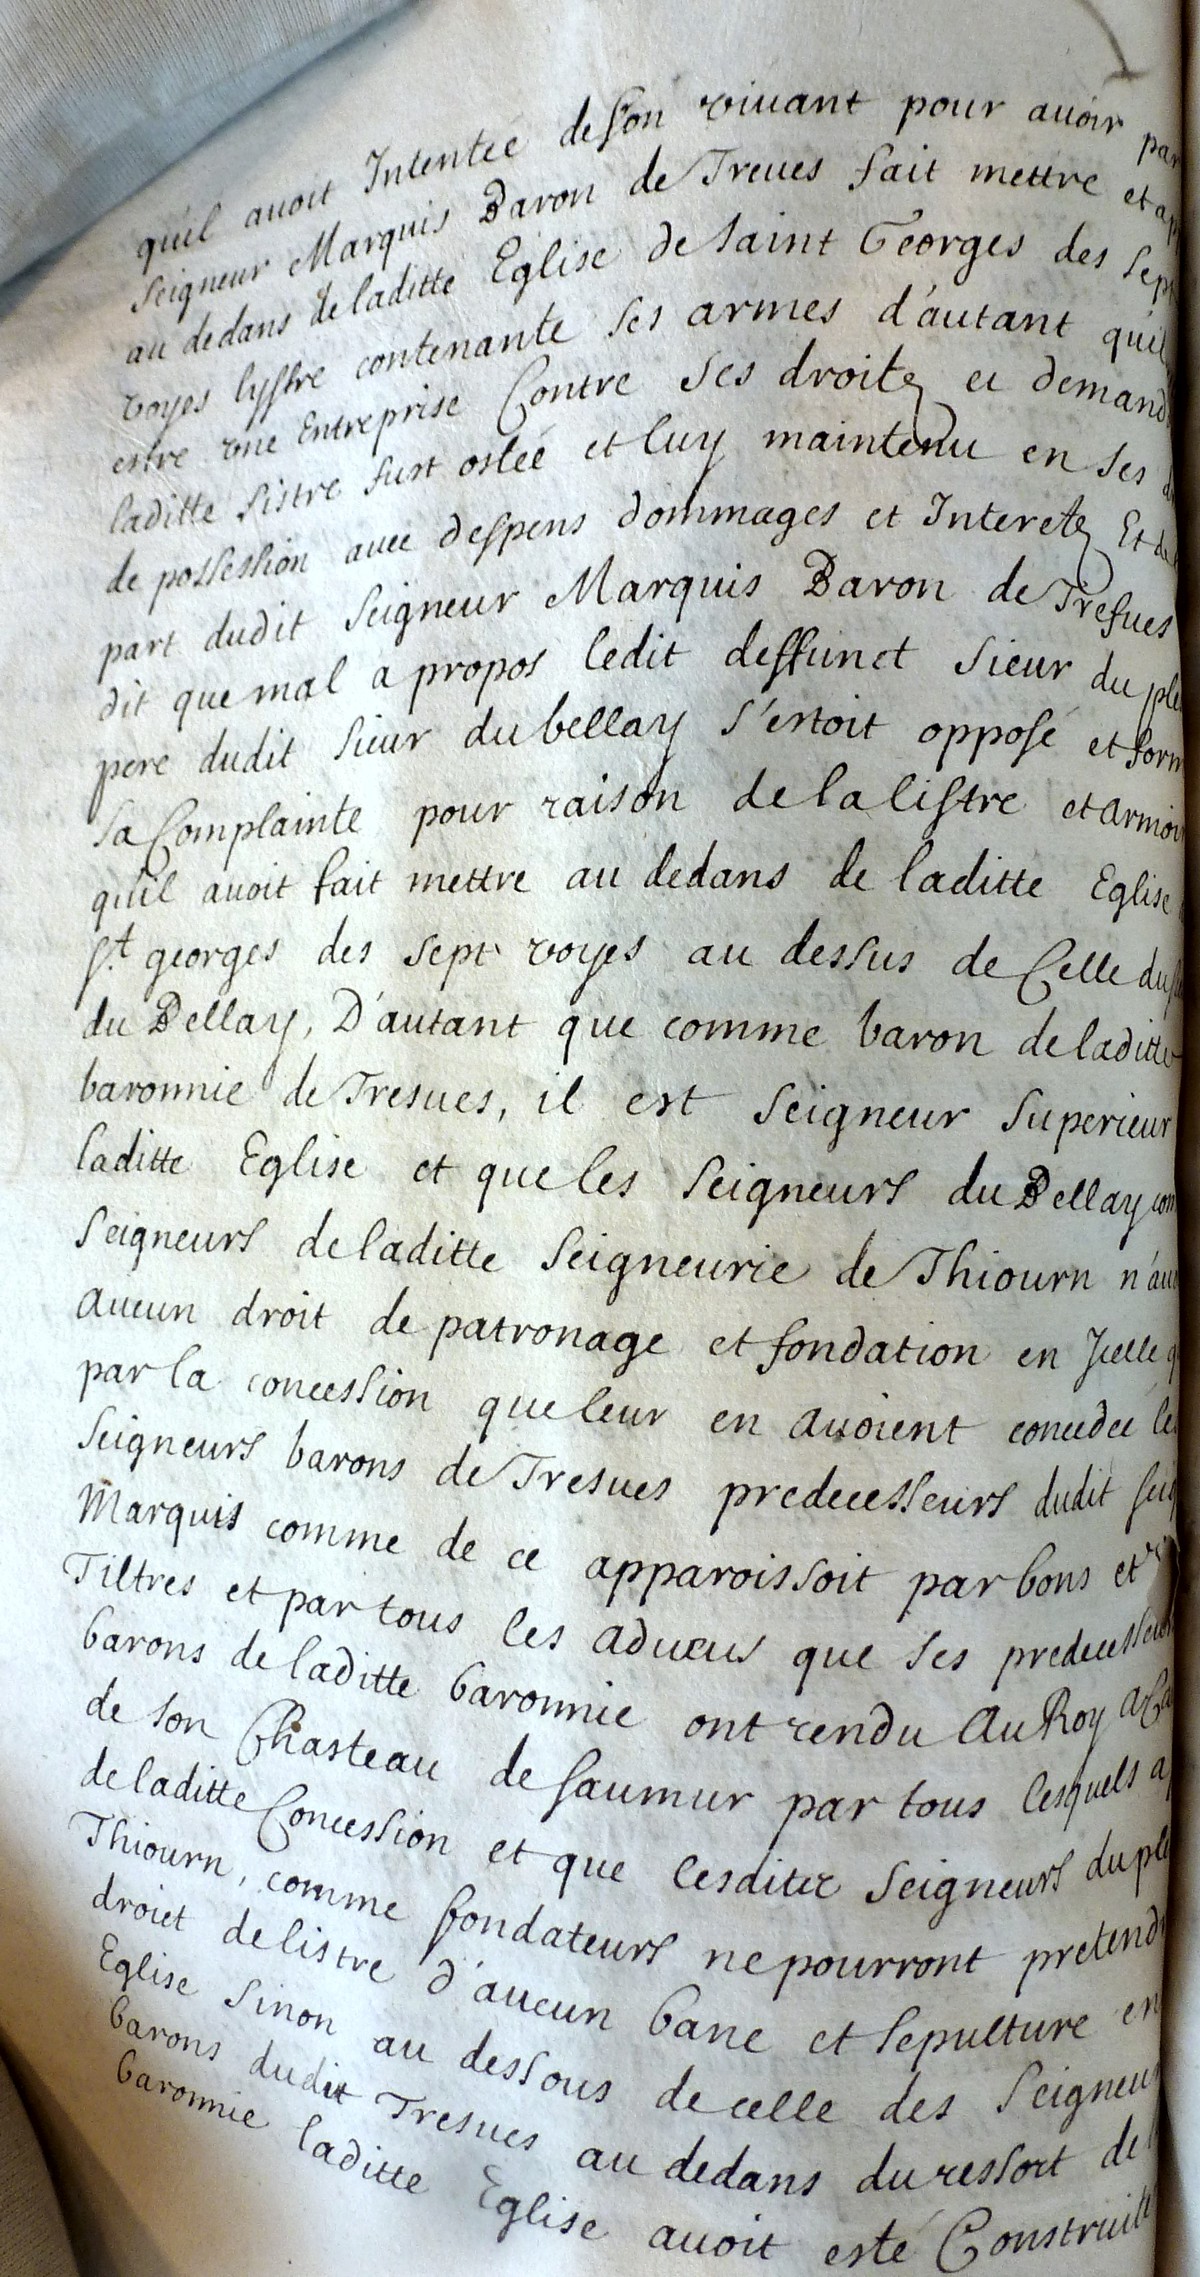 qu'il auoit Intentée de son viuant pour auoir par
Seigneur Marquis Baron de Treues fait mettre et
au dedans de laditte Eglise de saint Georges des sept
voyes lystre contenante ses armes d'autant qu'il
estre vne Entreprise Contre ses droits et demand
laditte listre fust ostée et luy maintenu en ses
de possession auec despens dommages et Interets Et de
part dudit Seigneur Marquis Baron de Tresues
dit que mal a propos ledit deffunct Sieur du ple
pere dudit sieur du bellay s'estoit opposé et form
sa Complainte pour raison de la listre et armoi
qu'il auoit fait mettre au dedans de laditte Eglise
St georges des sept voyes au dessus de Celle du
du Bellay, D'autant que comme baron de laditte
baronnie de Tresues, il est Seigneur Superieur
laditte Eglise et que les Seigneurs du Bellay com
Seigneurs de laditte Seigneurie de Thiourn n'au
aucun droit de patronage et fondation en Jcelle
par la concession que leur en auoient concedée les
Seigneurs barons de Tresues predecesseurs dudit seig
Marquis comme de ce apparoissoit par bons et
Tiltres et par tous les adueus que ses predecesseurs
barons de laditte baronnie ont rendu Au Roy a Ca
de son Chasteau de saumur par tous lesquels a
de laditte Concession et que lesdites Seigneurs du ple
Thiourn, comme fondateurs ne pourront pretend
droict de listre d'aucun banc et sepulture en
Eglise Sinon au dessous de celle des Seigneur
barons dudit Tresues au dedans du ressort de
baronnie laditte Eglise auoit esté Construitte